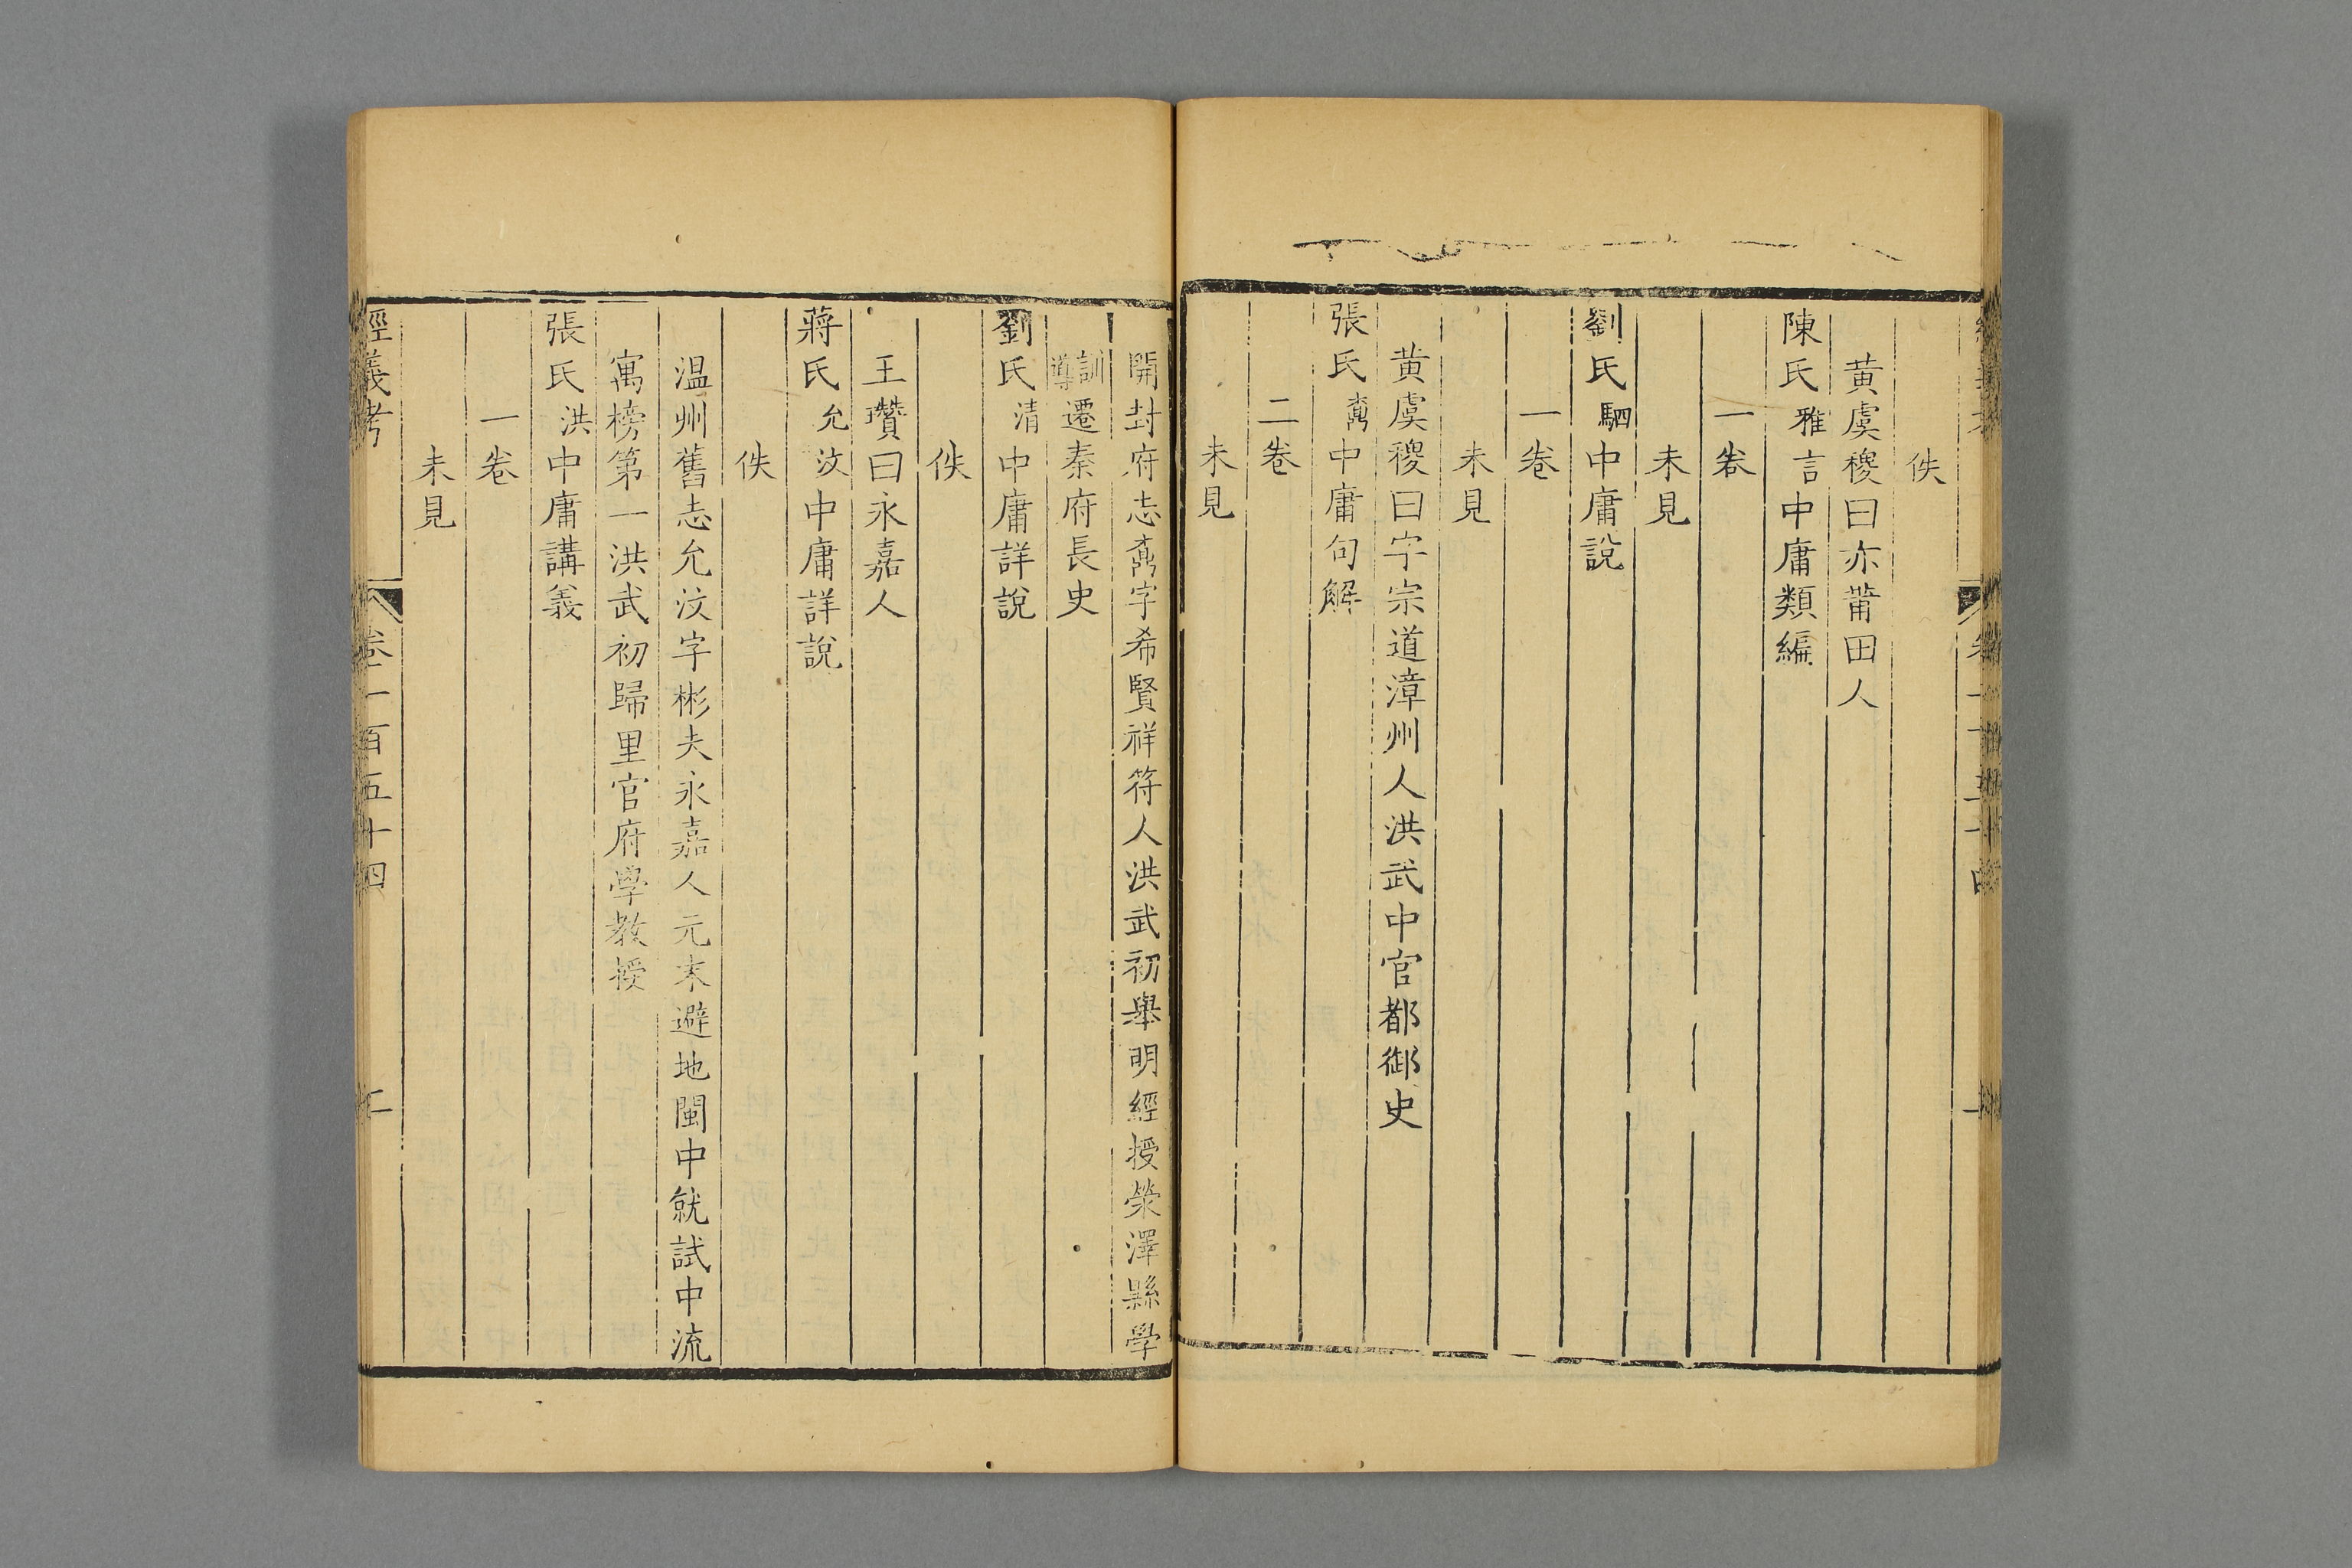 佚
黄虞稷曰亦莆田人
陳氏雅言中庸類編
一卷
未見
劉氏駟中庸說
一卷
未見
黄虞稷曰字宗道漳州人洪武中官都御史
張氏㢠中庸句解
二卷
未見
開封府志字希賢祥符人洪武初舉明經授滎澤縣學
訓導遷秦府長史
劉氏清中庸詳說
佚
王瓚曰永嘉人
蔣氏允汶中庸詳說
佚
温州舊志允汶字彬夫永嘉人元末避地閩中就試中流
寓榜第一洪武初歸里官府學教授
張氏洪中庸講義
一卷
未見
經義考
卷一百五十四